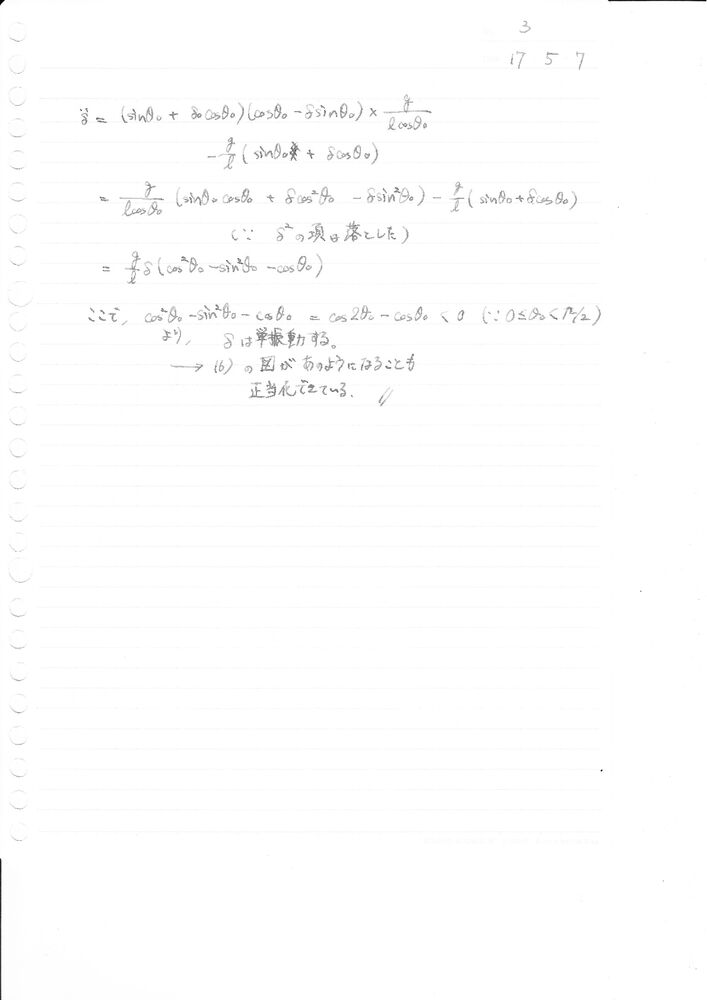 3
17 5 7
δ̈ = (sinθ₀ + δcosθ₀)(cosθ₀ - δsinθ₀) × g/(l cosθ₀)
- g/l (sinθ₀ + δcosθ₀)
= g/(l cosθ₀) (sinθ₀cosθ₀ + δcos²θ₀ - δsin²θ₀) - g/l (sinθ₀ + δcosθ₀)
(∵ δ²の項は落とした)
= g/l δ(cos²θ₀ - sin²θ₀ - cosθ₀)
ここで, cos²θ₀ - sin²θ₀ - cosθ₀ = cos2θ₀ - cosθ₀ < 0 (∵ 0≤θ₀<π/2)
より, δは単振動する。
→ (6) の図があのようになることも
正当化できている. //